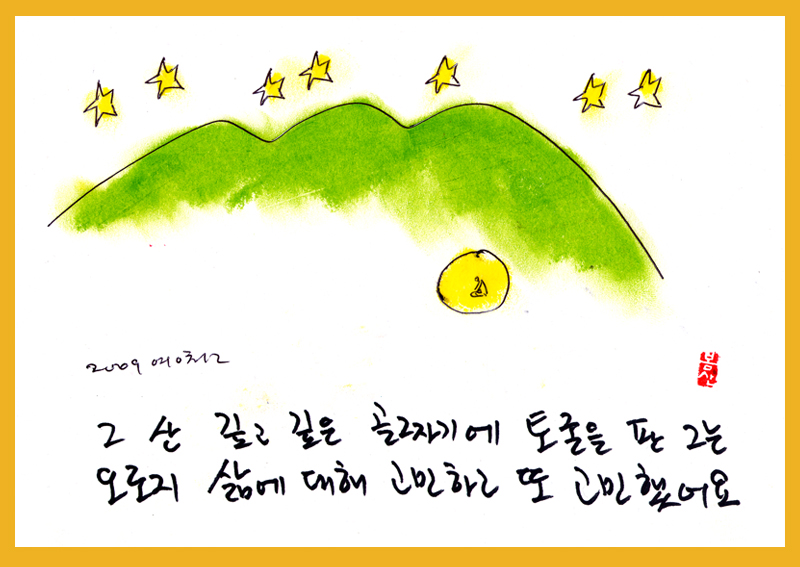 2009
봄산
그 산 깊고 깊은 골짜기에 토굴을 판 그는
오로지 삶에 대해 고민하고 또 고민했어요